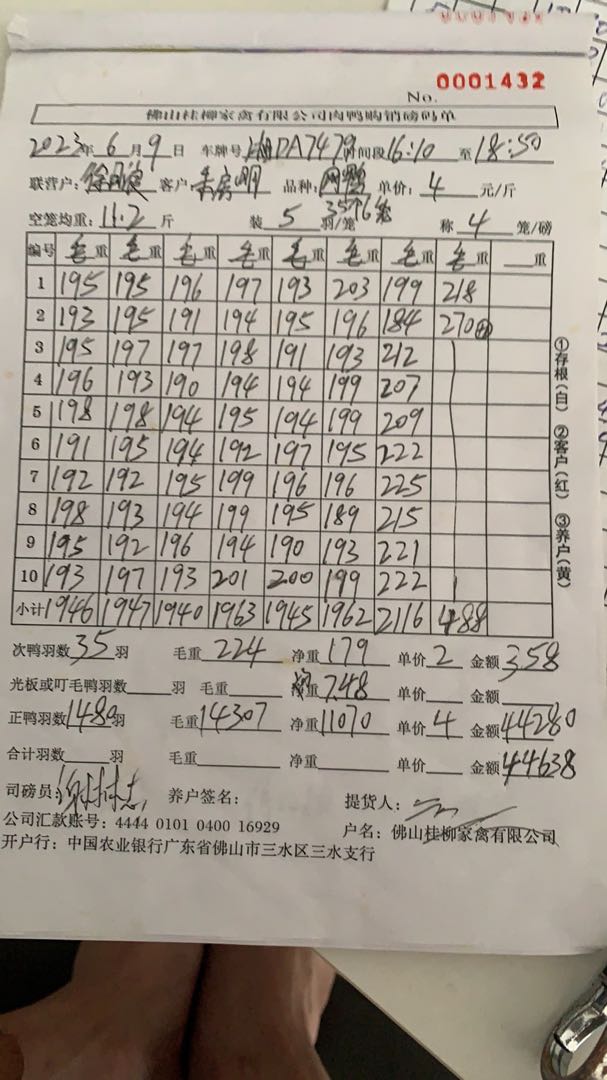 No. 0001432
佛山桂柳家禽有限公司肉鸭购销磅码单
2023年6月9日 车牌号 DA7479 时间段16:10至18:50
联营户: 客户: 明 品种: 鸭 单价:4元/斤
空笼均重:11.2斤 装5羽/笼 35个6笼 称4笼/磅
编号 毛重 毛重 毛重 毛重 毛重 毛重 毛重 毛重 重
1 195 195 196 197 193 203 199 218
2 193 195 191 194 195 196 184 270
3 195 197 197 198 191 193 212
4 196 193 190 194 194 199 207
5 198 198 194 195 194 199 209
6 191 195 194 192 197 195 222
7 192 192 195 199 196 196 225
8 198 193 194 199 195 189 215
9 195 192 196 194 190 193 221
10 193 197 193 201 200 199 222
小计 1946 1947 1940 1963 1945 1962 2116 488
次鸭羽数35羽 毛重224 净重179 单价2 金额358
光板或叮毛鸭羽数 羽 毛重 重748 单价 金额
正鸭羽数1480羽 毛重14307 净重11070 单价4 金额44280
合计羽数 羽 毛重 净重 单价 金额44638
司磅员: 养户签名: 提货人:
公司汇款账号: 4444 0101 0400 16929 户名: 佛山桂柳家禽有限公司
开户行: 中国农业银行广东省佛山市三水区三水支行
①存根(白) ②客户(红) ③养户(黄)